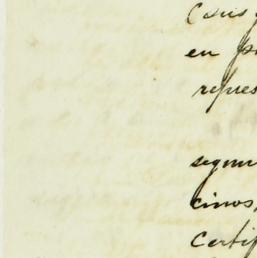 Cons
en pr
repres
segun
cinos,
Certif